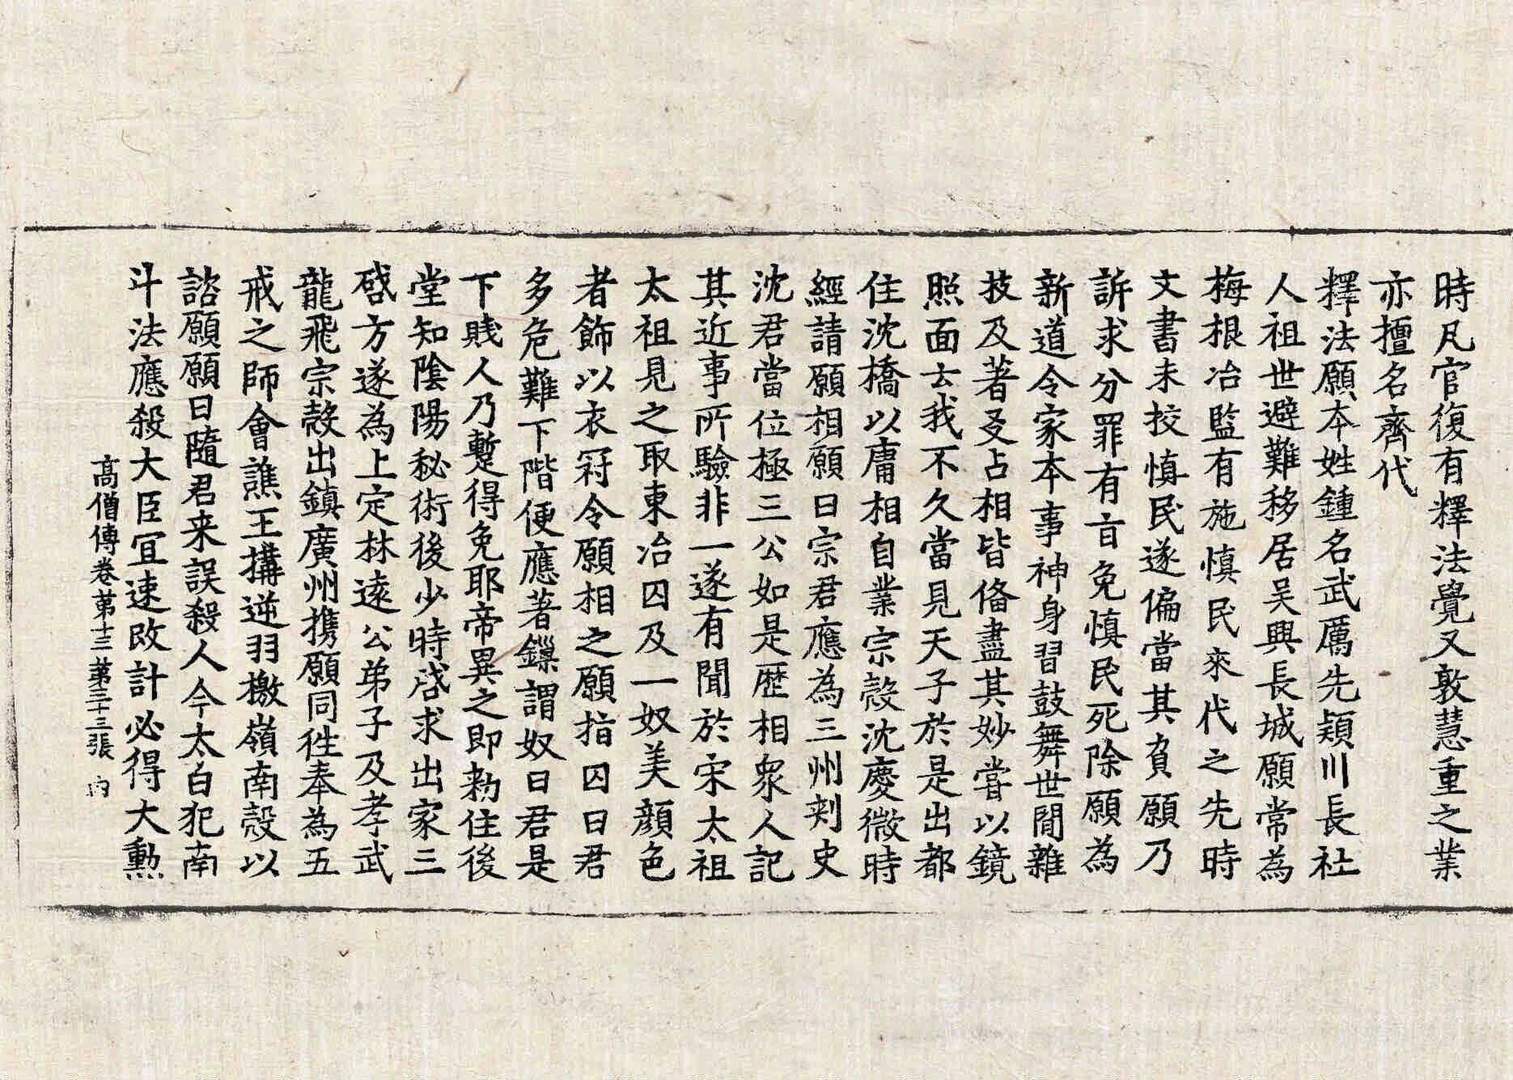 時凡官復有釋法覺又敦慧重之業
亦擅名齊代
釋法願本姓鍾名武厲先穎川長社
人祖世避難移居吴興長城願常為
梅根冶監有施慎民來代之先時
文書未校慎民遂偏當其負願乃
訴求分罪有旨免慎民死除願為
新道令家本事神身習鼓舞世間雜
技及著爻占相皆俻盡其妙嘗以鏡
照面云我不久當見天子於是出都
住沈橋以庸相自業宗慤沈慶微時
經請願相願曰宗君應為三州刾史
沈君當位極三公如是歷相衆人記
其近事所驗非一遂有聞於宋太祖
太祖見之取東冶囚及一奴美顔色
者飾以衣冠令願相之願指囚曰君
多危難下階便應著鏁謂奴曰君是
下賎人乃蹔得免耶帝異之即勑住後
堂知隂陽秘術後少時啓求出家三
啓方遂為上定林逺公弟子及孝武
龍飛宗慤出鎮廣州携願同徃奉為五
戒之師會譙王搆逆羽檄嶺南慤以
諮願願曰隨君来誤殺人今太白犯南
斗法應殺大臣冝速改計必得大勲
高僧傳卷第十三 第三十三張 內